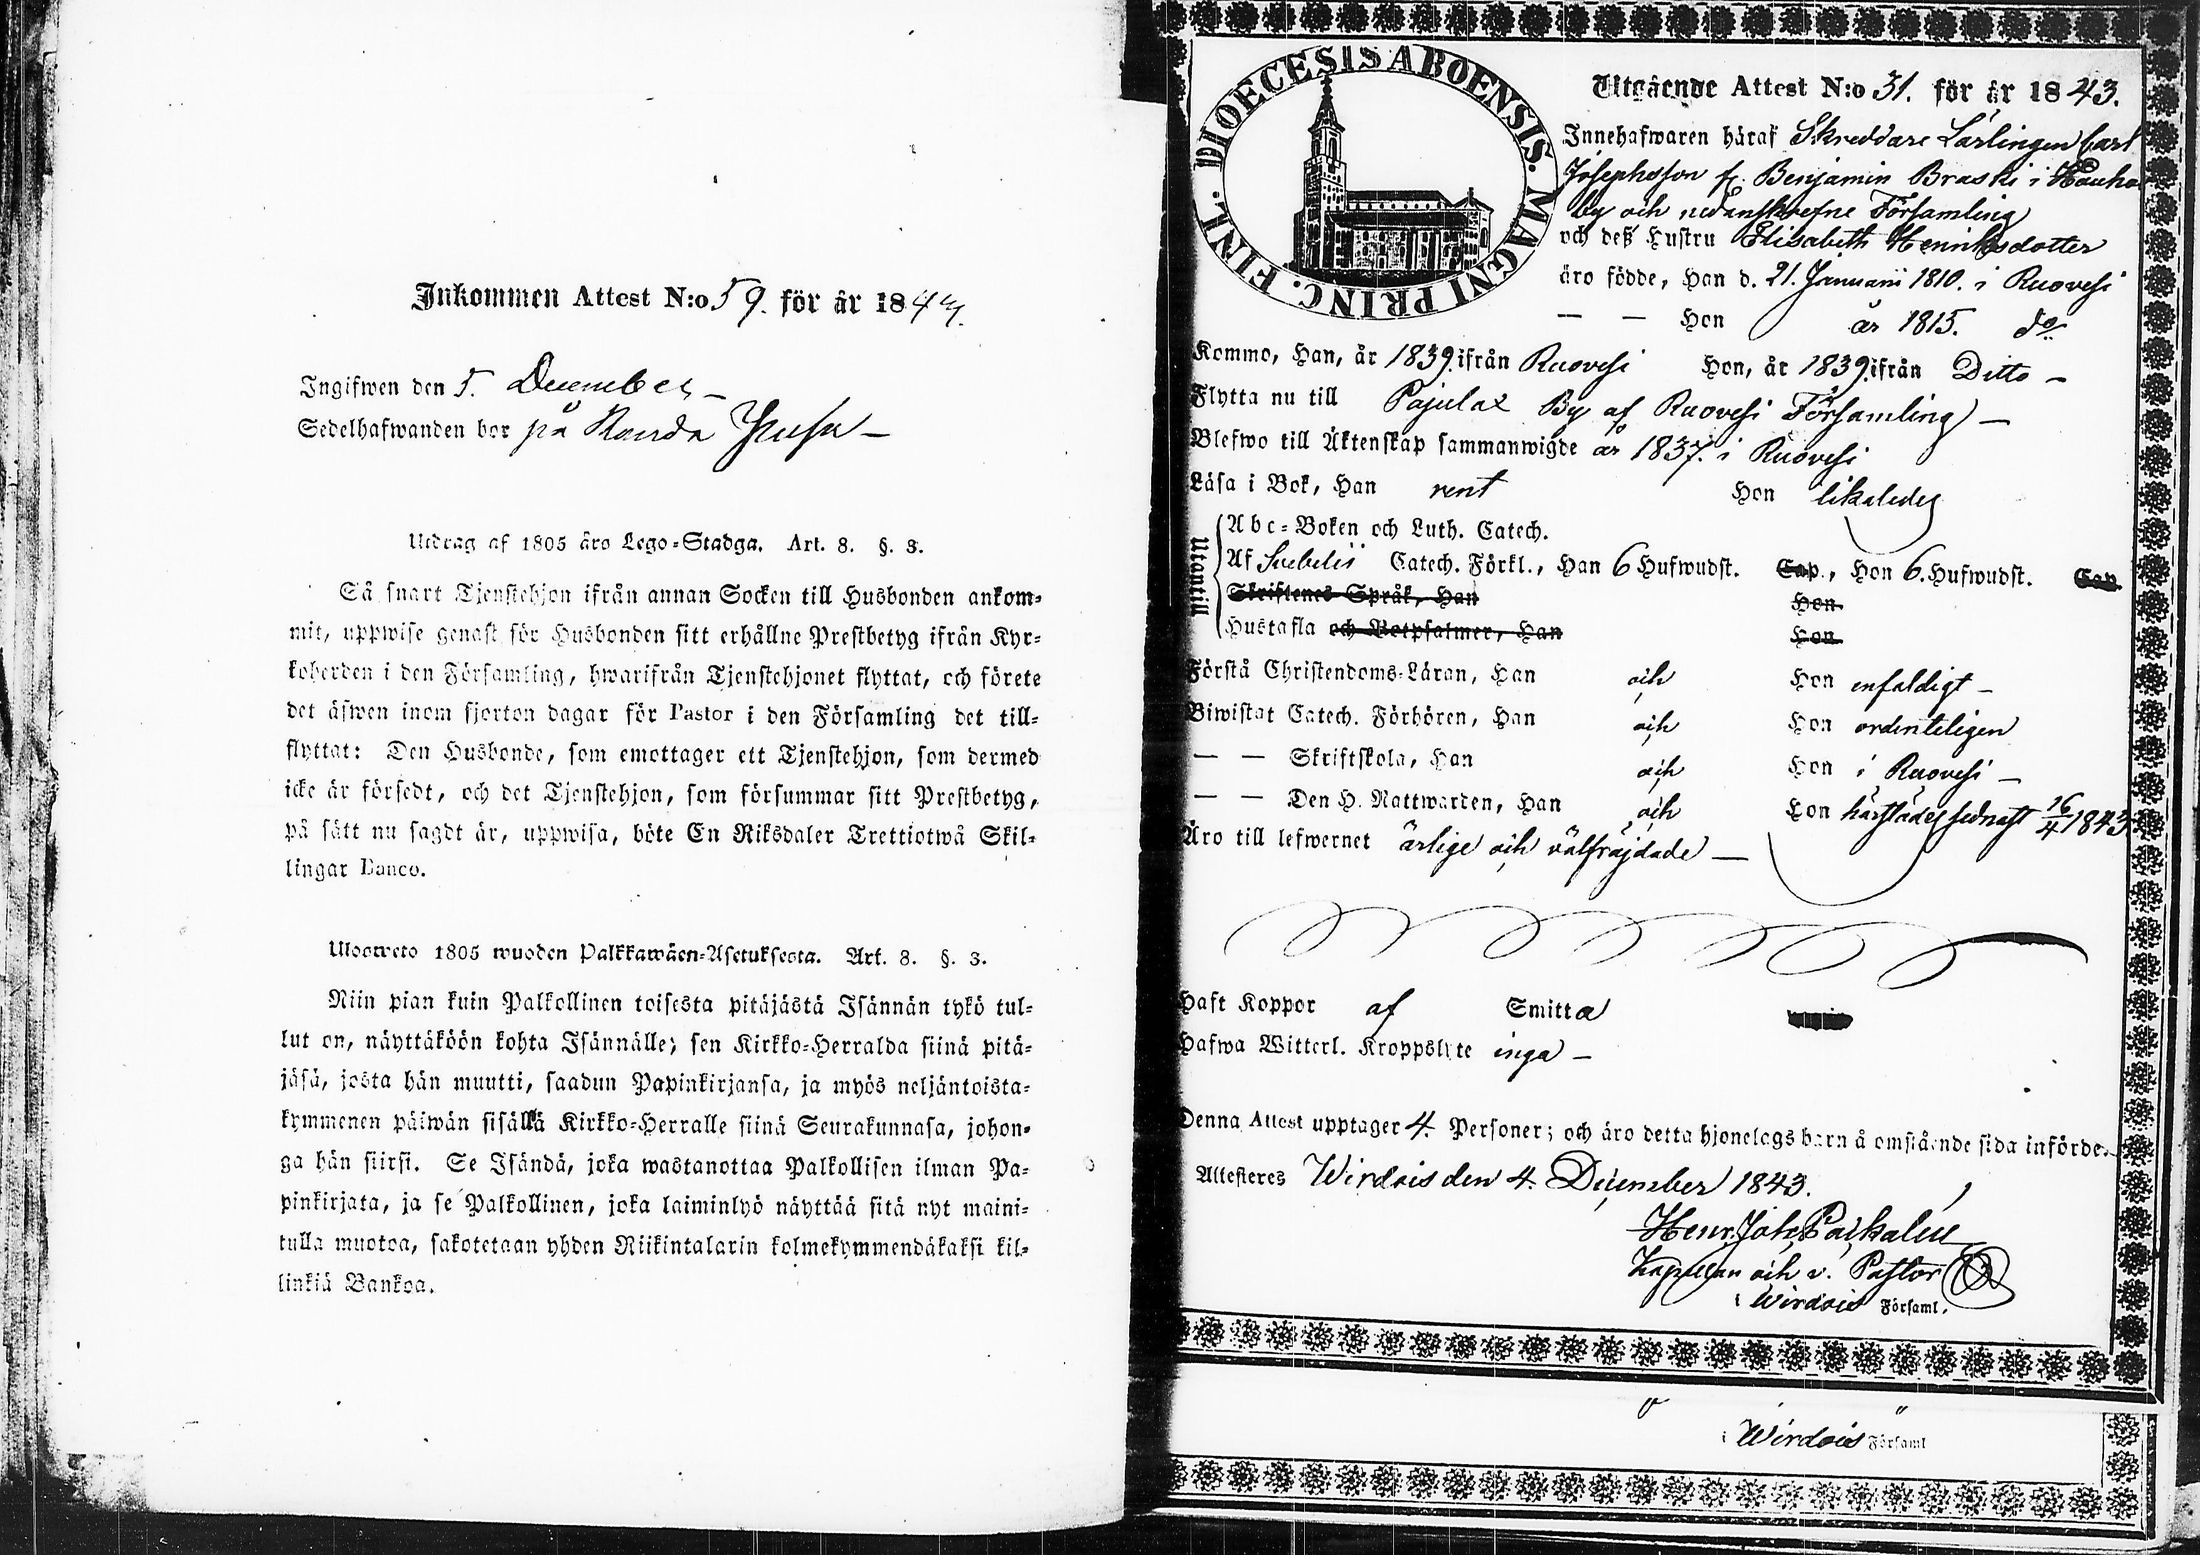 Inkommen Attest N:o 59. för år 184
Ingifwen den 5. December –
Sedelhafwanden bor på
Utdrag af 1805 åro Lego-Stadga. Art. 8. §. 3.
Så snart Tjenstehjon ifrån annan Socken till Husbonden ankom-
mit, uppwise genast för Husbonden sitt erhållne Prestbetyg ifrån Kyr-
koherden i den Församling, hwarifrån Tjenstehjonet flyttat, och förete
det äfwen inom fjorton dagar för Pastor i den Församling det till-
flyttat: Den Husbonde, som emottager ett Tjenstehjon, som dermed
icke är försedt, och det Tjenstehjon, som försummar sitt Prestbetyg,
på sätt nu sagdt är, uppwisa, böte En Riksdaler Trettiotwå Skil-
lingar Banco.
Ulosweto 1805 wuoden Palkkawäen-Asetuksesta. Art. 8. §. 3.
Niin pian kuin Palkollinen toisesta pitäjästä Isännän tykö tul-
lut on, näyttäköön kohta Isännälle; sen Kirkko-Herralda siinä pitä-
jäsä, josta hän muutti, saadun Papinkirjansa, ja myös neljäntoista-
kymmenen päiwän sisällä Kirkko-Herralle siinä Seurakunnasa, johon-
ga hän siirsi. Se Isändä, joka wastanottaa Palkollisen ilman Pa-
pinkirjata, ja se Palkollinen, joka laiminlyö näyttää sitä nyt maini-
tulla muotoa, sakotetaan yhden Riikintalarin kolmekymmendäkaksi kil-
linkiä Bankoa.
DIOECESIS ABOENSIS. MAGNI PRINC. FINL.
Utgående Attest N:o 31. för år 1843.
Innehafwaren häraf Skreddare Lärlingen Carl
Josephsson f. Benjamin Braski i
by och nedanskrefne Församling
och deß Hustru Elisabeth Henriksdotter
äro födde, Han d. 21. Januarii 1810. i Ruovesi
— — Hon år 1815. do
Kommo, Han, år 1839. ifrån Ruovesi Hon, år 1839. ifrån Ditto –
Flytta nu till By af Ruovesi Församling –
Blefwo till Äktenskap sammanwigde år 1837. i Ruovesi
Läsa i Bok, Han rent Hon likaledes
Utantill
Abc-Boken och Luth. Catech.
Af Svebelii Catech. Förkl., Han 6 Hufwudst. Cap., Hon 6. Hufwudst. Cap.
Skriftenes Språk, Han Hon
Hustafla och Botpsalmer, Han Hon
Förstå Christendoms-Läran, Han och Hon enfaldigt –
Biwistat Catech. Förhören, Han och Hon ordenteligen
— — Skriftskola, Han och Hon i Ruovesi –
— — Den H. Nattwarden, Han och Hon härstädes sednast 16/4 1843
Äro till lefwernet ärlige och välfräjdade —
Haft Koppor af Smitta
Hafwa Witterl. Kroppslyte inga –
Denna Attest upptager 4. Personer; och äro detta hjonelags barn å omstående sida införde.
Attesteres Wirdois den 4. December 1843.
Henr. Joh.
Kapellan och v. Pastor
i Wirdois Församl.
i Wirdois Församl